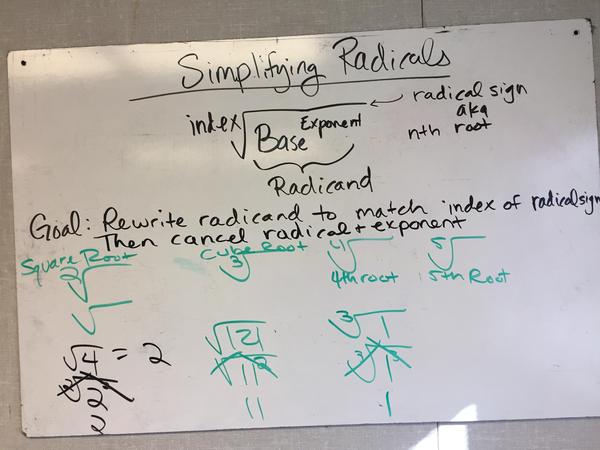 Simplifying Radicals
index√Base^Exponent
radical sign
aka
nth root
Radicand
Goal: Rewrite radicand to match index of radical sign
Then cancel radical + exponent
Square Root
2√
√
Cube Root
3√
4√
4th root
5√
5th Root
√4 = 2
2√2²
2
√121
√11²
11
3√1
3√1³
1